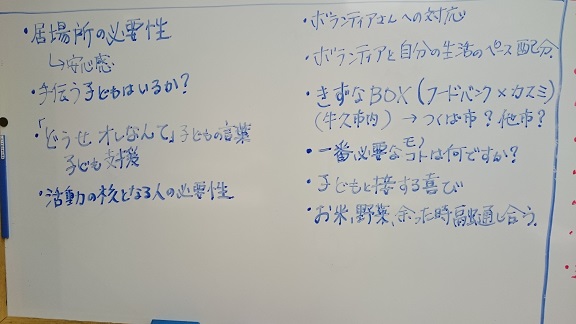 ・居場所の必要性
↳安心感
・手伝う子どもはいるか?
・「どうせオレなんて」子どもの言葉
子ども支援
・活動の核となる人の必要性
・ボランティアさんへの対応
・ボランティアと自分の生活のペース配分.
・きずなBOX(フードバンク×カスミ)
(牛久市内)→つくば市?他市?
・一番必要なモノコトは何ですか?
・子どもと接する喜び
・お米、野菜、余った時 融通し合う.